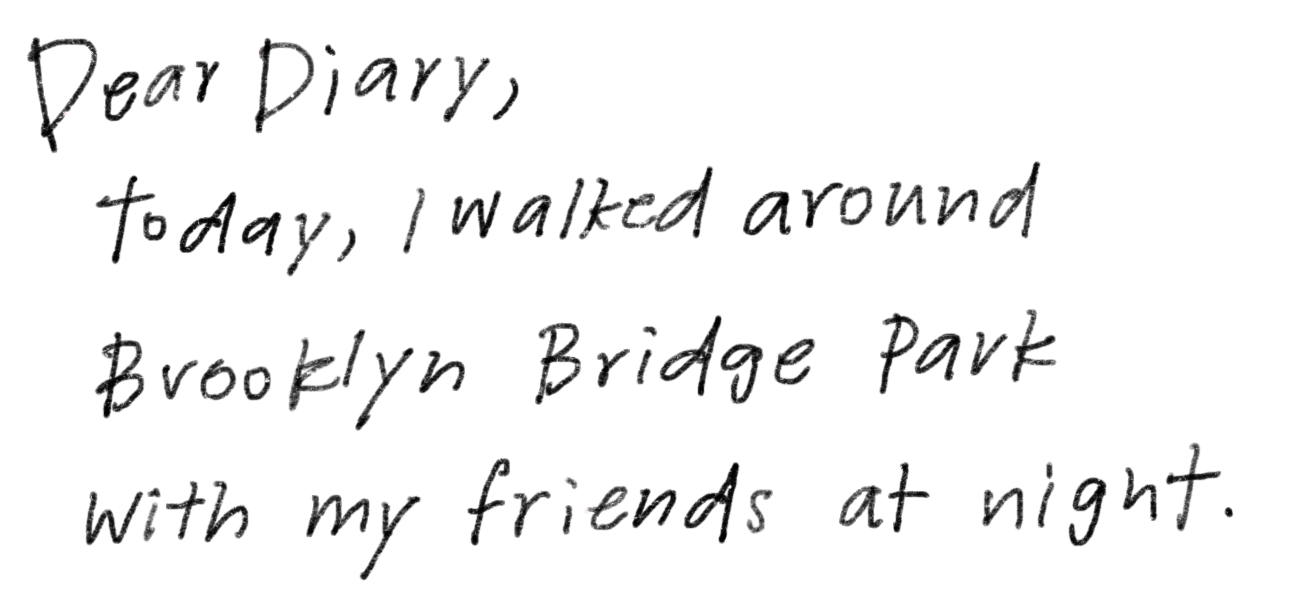 Dear Diary,
today, I walked around
Brooklyn Bridge Park
with my friends at night.